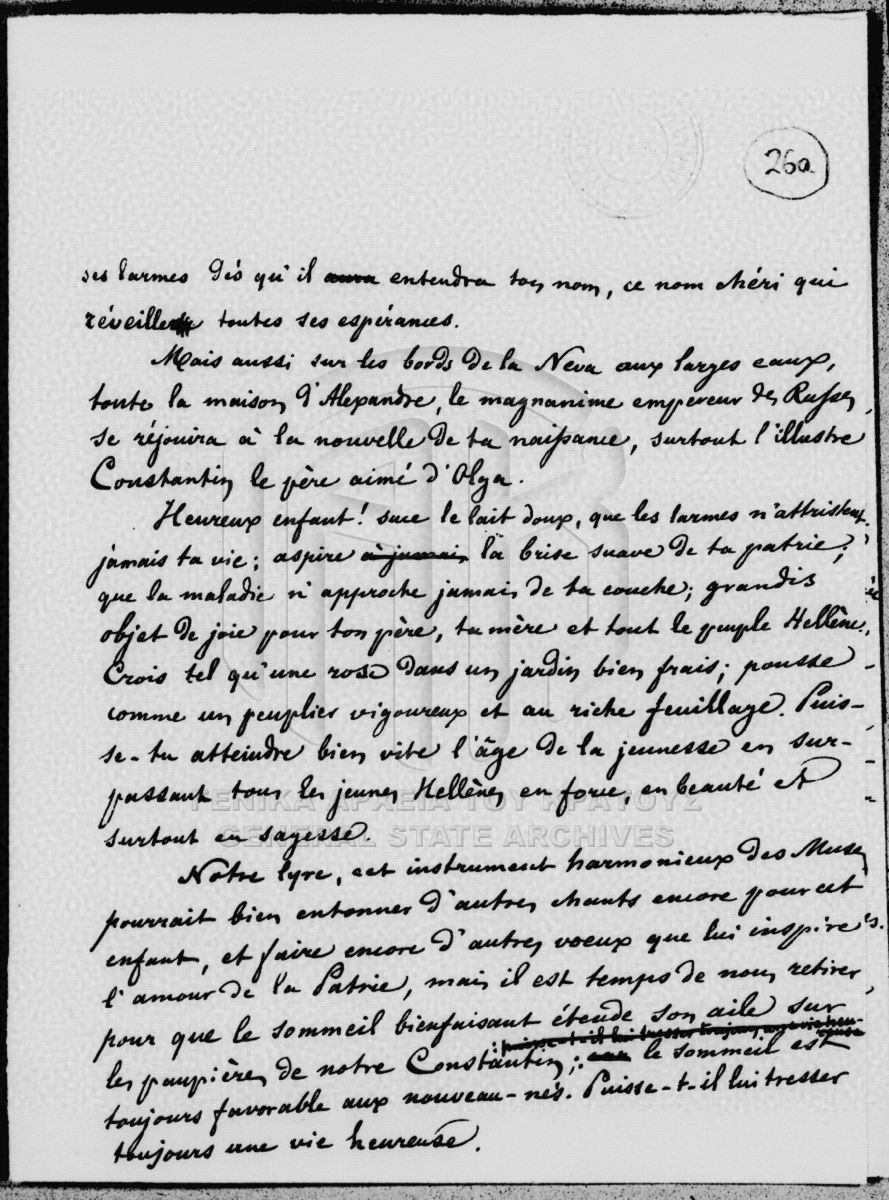 26a
ses larmes dès qu'il aura entendra ton nom, ce nom chéri qui
réveille toutes ses espérances.
Mais aussi sur les bords de la Neva aux larges eaux,
toute la maison d'Alexandre, le magnanime empereur des Russes,
se réjouira à la nouvelle de ta naissance, surtout l'illustre
Constantin le père aimé d'Olga.
Heureux enfant! suce le lait doux, que les larmes n'attristent
jamais ta vie; aspire à jamais la brise suave de ta patrie;
que la maladie n'approche jamais de ta couche; grandis
objet de joie pour ton père, ta mère et tout le peuple Hellène.
Crois tel qu'une rose dans un jardin bien frais; pousse
comme un peuplier vigoureux et au riche feuillage. Puis-
se-tu atteindre bien vite l'âge de la jeunesse en sur-
passant tous les jeunes Hellènes en force, en beauté et
surtout en sagesse.
ΓΕΝΙΚΑ ΑΡΧΕΙΑ ΤΟΥ ΚΡΑΤΟΥΣ
GENERAL STATE ARCHIVES
Notre lyre, cet instrument harmonieux des Muses
pourrait bien entonner d'autres chants encore pour cet
enfant, et faire encore d'autres voeux que lui inspire
l'amour de la Patrie, mais il est temps de nous retirer
pour que le sommeil bienfaisant étende son aile sur
puisse-t-il lui tresser toujours une vie heu-
reuse
les paupières de notre Constantin; car le sommeil est
toujours favorable aux nouveau-nés. Puisse-t-il lui tresser
toujours une vie heureuse.